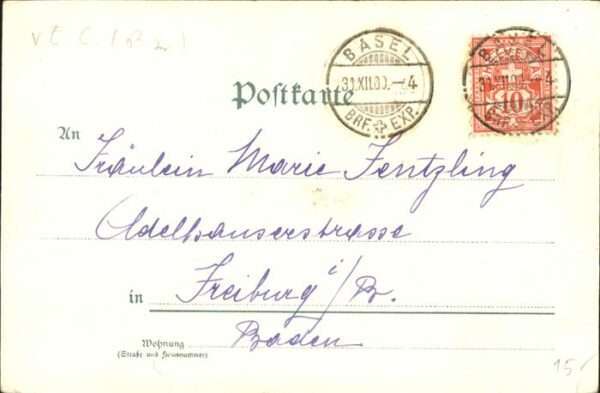 BASEL
31.XII.00.–4
BRF. EXP.
HELVETIA
10
Postkarte
An
Fräulein Marie Fentzling
Adelhauserstrasse
in Freiburg i/B.
Baden
Wohnung
(Straße und Hausnummer)
15.